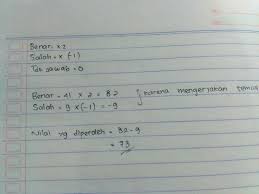 Benar = x 2
Salah = x (-1)
Tdk jawab = 0
Benar = 41 x 2 = 82
Salah = 9 x (-1) = -9 } karena mengerjakan semua
Nilai yg diperoleh = 82 - 9
= 73